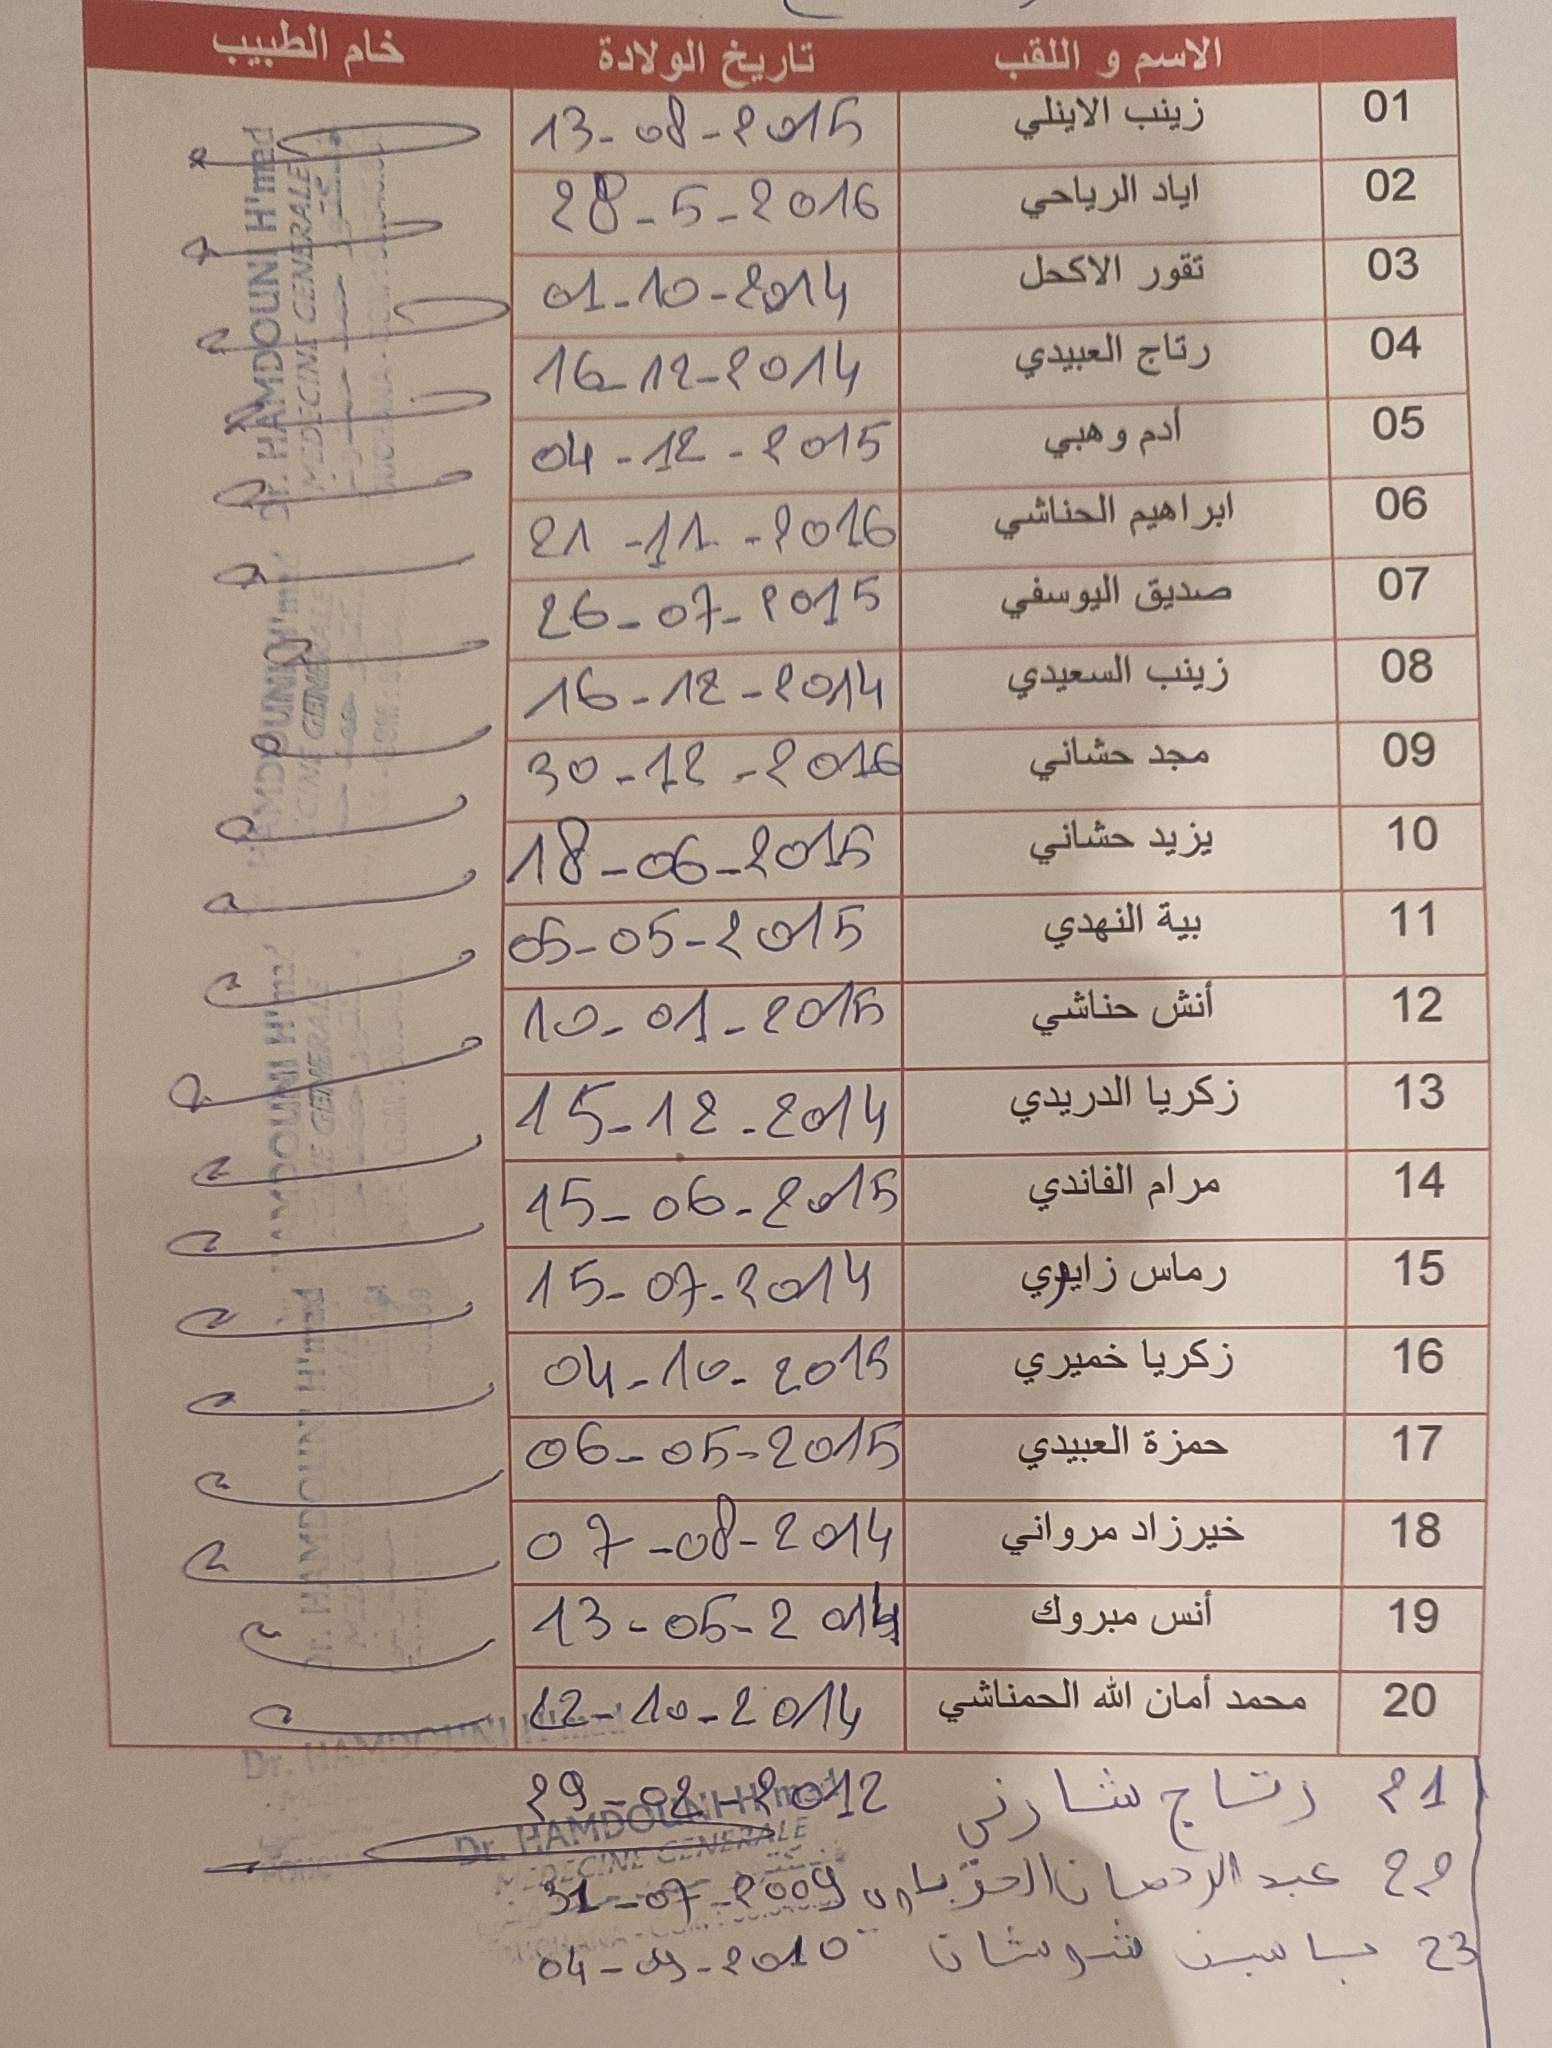 الاسم و اللقب تاريخ الولادة خام الطبيب
01 زينب الاينلي 13-08-2015
02 اياد الرياحي 28-5-2016
03 تقور الاكحل 01-10-2014
04 رتاج العبيدي 16-12-2014
05 أدم وهبي 04-12-2015
06 ابراهيم الحناشي 21-11-2016
07 صديق اليوسفي 26-07-2015
08 زينب السعيدي 16-12-2014
09 مجد حشاني 30-12-2016
10 يزيد حشاني 18-06-2015
11 بية النهدي 05-05-2015
12 أنش حناشي 10-01-2015
13 زكريا الدريدي 15-12-2014
14 مرام الفاندي 15-06-2015
15 رماس زايدي 15-07-2014
16 زكريا خميري 04-10-2015
17 حمزة العبيدي 06-05-2015
18 خيرزاد مرواني 07-08-2014
19 أنس مبروك 13-05-2014
20 محمد أمان الله الحمناشي 12-10-2014
21 رتاج شارني 29-02-2012
22 عبد الرحمان 31-07-2009
23 ياسين شوشان 04-09-2010
Dr. HAMDOUNI H'med
MEDECINE GENERALE
Dr. HAMDOUNI H'med
Dr. HAMDOUNI H'med
Dr. HAMDOUNI H'med
MEDECINE GENERALE